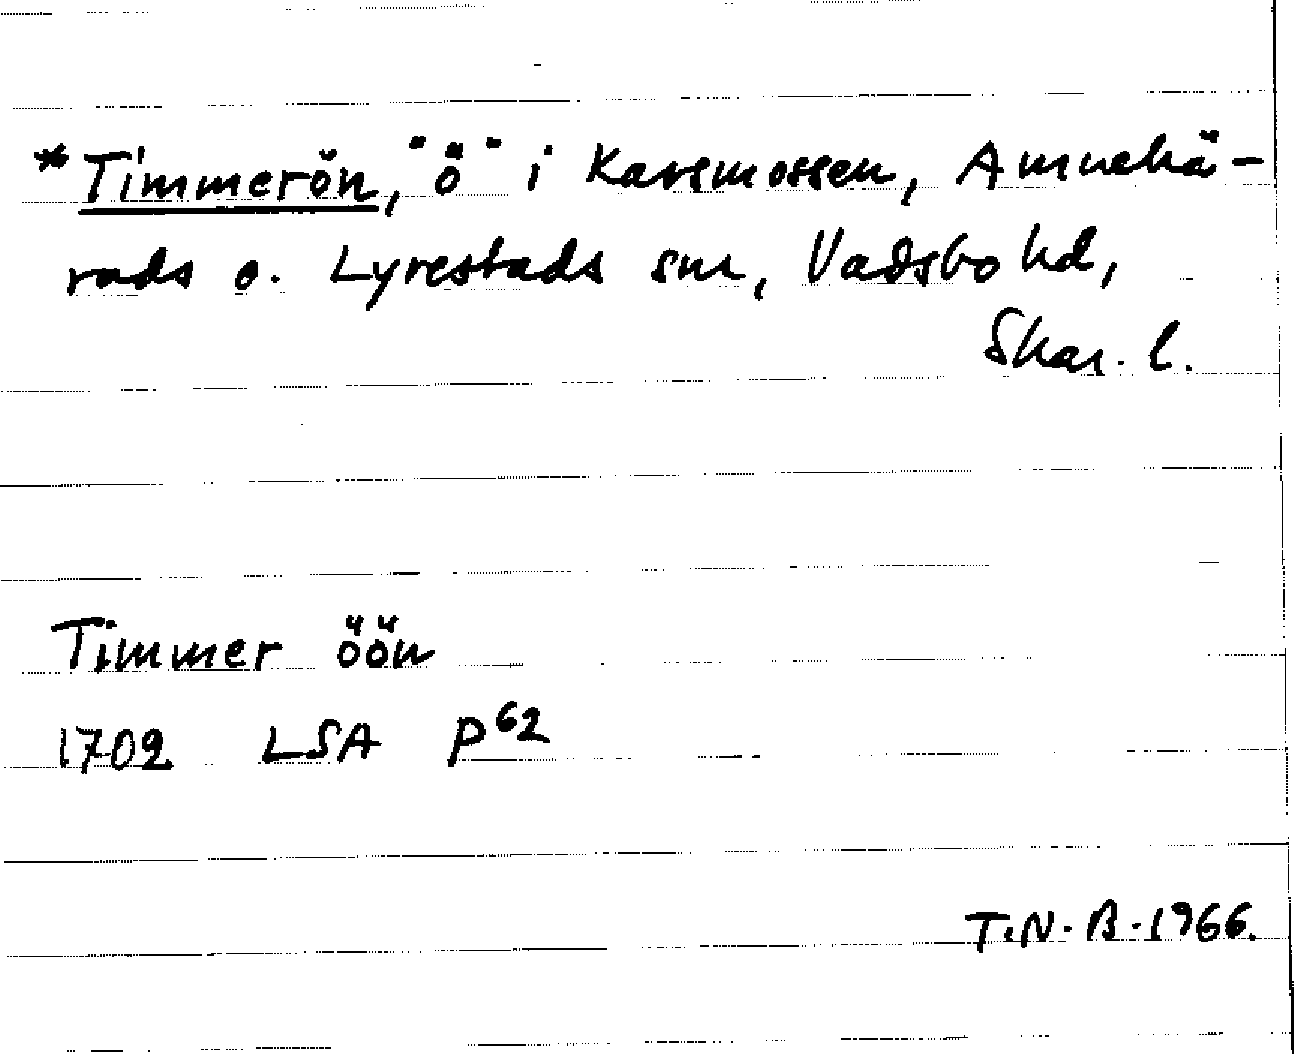 *Timmerön, "ö" i Karsmossen, Amnehä-
rads o. Lyrestads snr, Vadsbo hd,
Skar. l.
Timmer öön
1702 LSA P62
T.N.B. 1966.